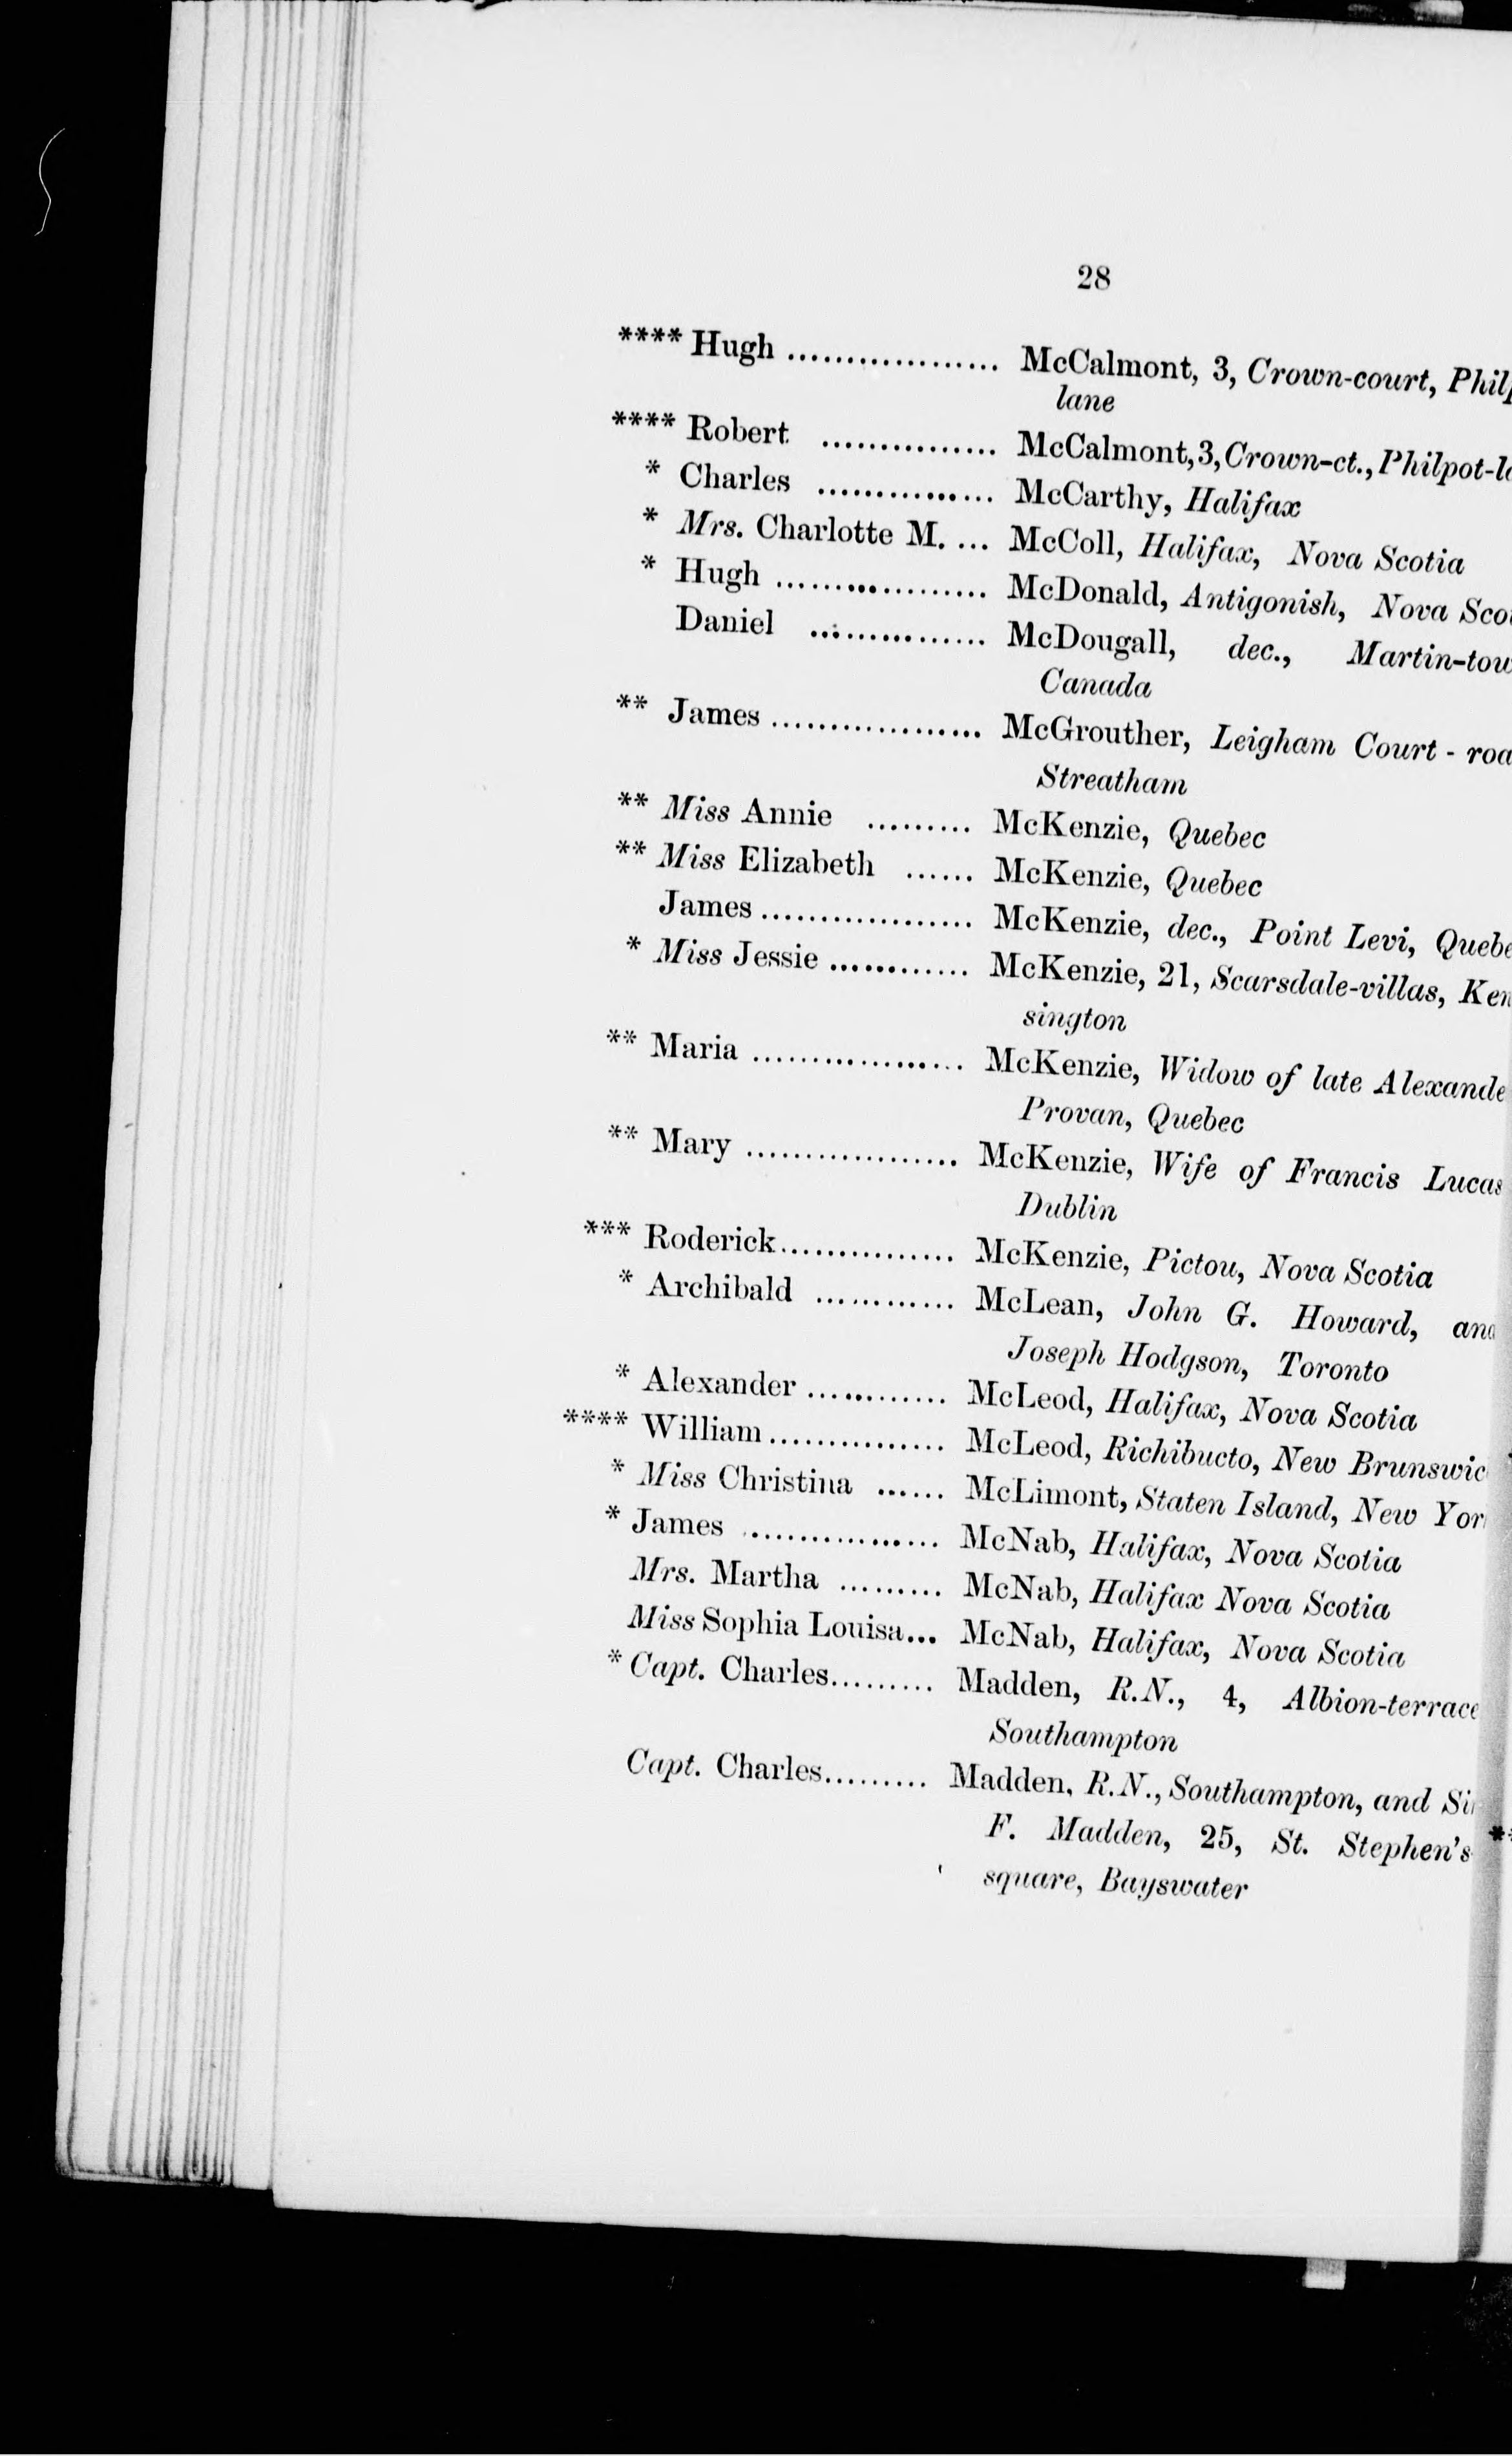 28
**** Hugh .................. McCalmont, 3, Crown-court, Philp
lane
**** Robert ............... McCalmont, 3, Crown-ct., Philpot-la
* Charles ............... McCarthy, Halifax
* Mrs. Charlotte M. ... McColl, Halifax, Nova Scotia
* Hugh .................. McDonald, Antigonish, Nova Scot
Daniel ............... McDougall, dec., Martin-tow
Canada
** James .................. McGrouther, Leigham Court - roa
Streatham
** Miss Annie ......... McKenzie, Quebec
** Miss Elizabeth ...... McKenzie, Quebec
James .................. McKenzie, dec., Point Levi, Quebe
* Miss Jessie ............ McKenzie, 21, Scarsdale-villas, Ken
sington
** Maria .................. McKenzie, Widow of late Alexande
Provan, Quebec
** Mary .................. McKenzie, Wife of Francis Lucas
Dublin
*** Roderick ............... McKenzie, Pictou, Nova Scotia
* Archibald ............ McLean, John G. Howard, and
Joseph Hodgson, Toronto
* Alexander ............ McLeod, Halifax, Nova Scotia
**** William ............... McLeod, Richibucto, New Brunswic
* Miss Christina ...... McLimont, Staten Island, New Yor
* James ................. McNab, Halifax, Nova Scotia
Mrs. Martha ......... McNab, Halifax Nova Scotia
Miss Sophia Louisa... McNab, Halifax, Nova Scotia
* Capt. Charles ......... Madden, R.N., 4, Albion-terrace
Southampton
Capt. Charles ......... Madden, R.N., Southampton, and Si
F. Madden, 25, St. Stephen's
square, Bayswater